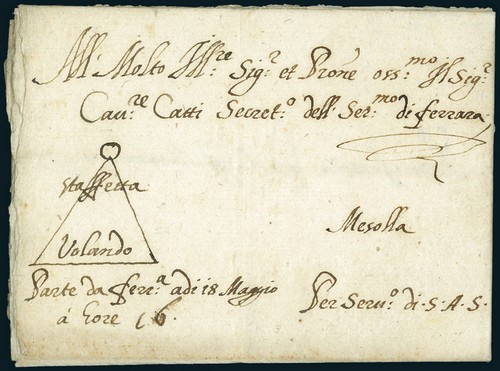 All' Molto Ill.re Sig.r et Prone oss.mo Il Sig.r
Cau.re Catti Secret.o dell' Ser.mo di ferrara
staffetta
Volando
Mesolla
Parte da ferr.a adi 18 Maggio
à hore 16.
Per Seru.o di S. A. S.